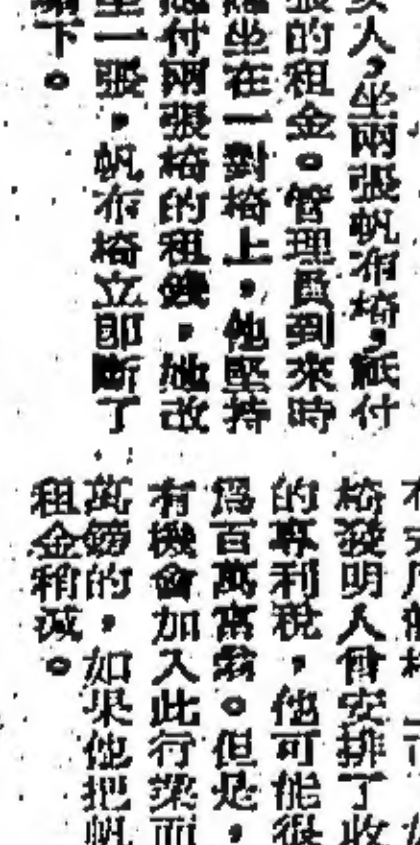 人，坐兩張帆布椅，祇付
的租金。管理員到來時
坐在一對椅上，他堅持
付兩張椅的租錢，她改
一張，帆布椅立即斷了
下。
椅發明人曾安排了收
的專利稅，他可能很
爲百萬富翁。但是，
有機會加入此行業而
萬鎊的，如果他把帆
租金稍減。